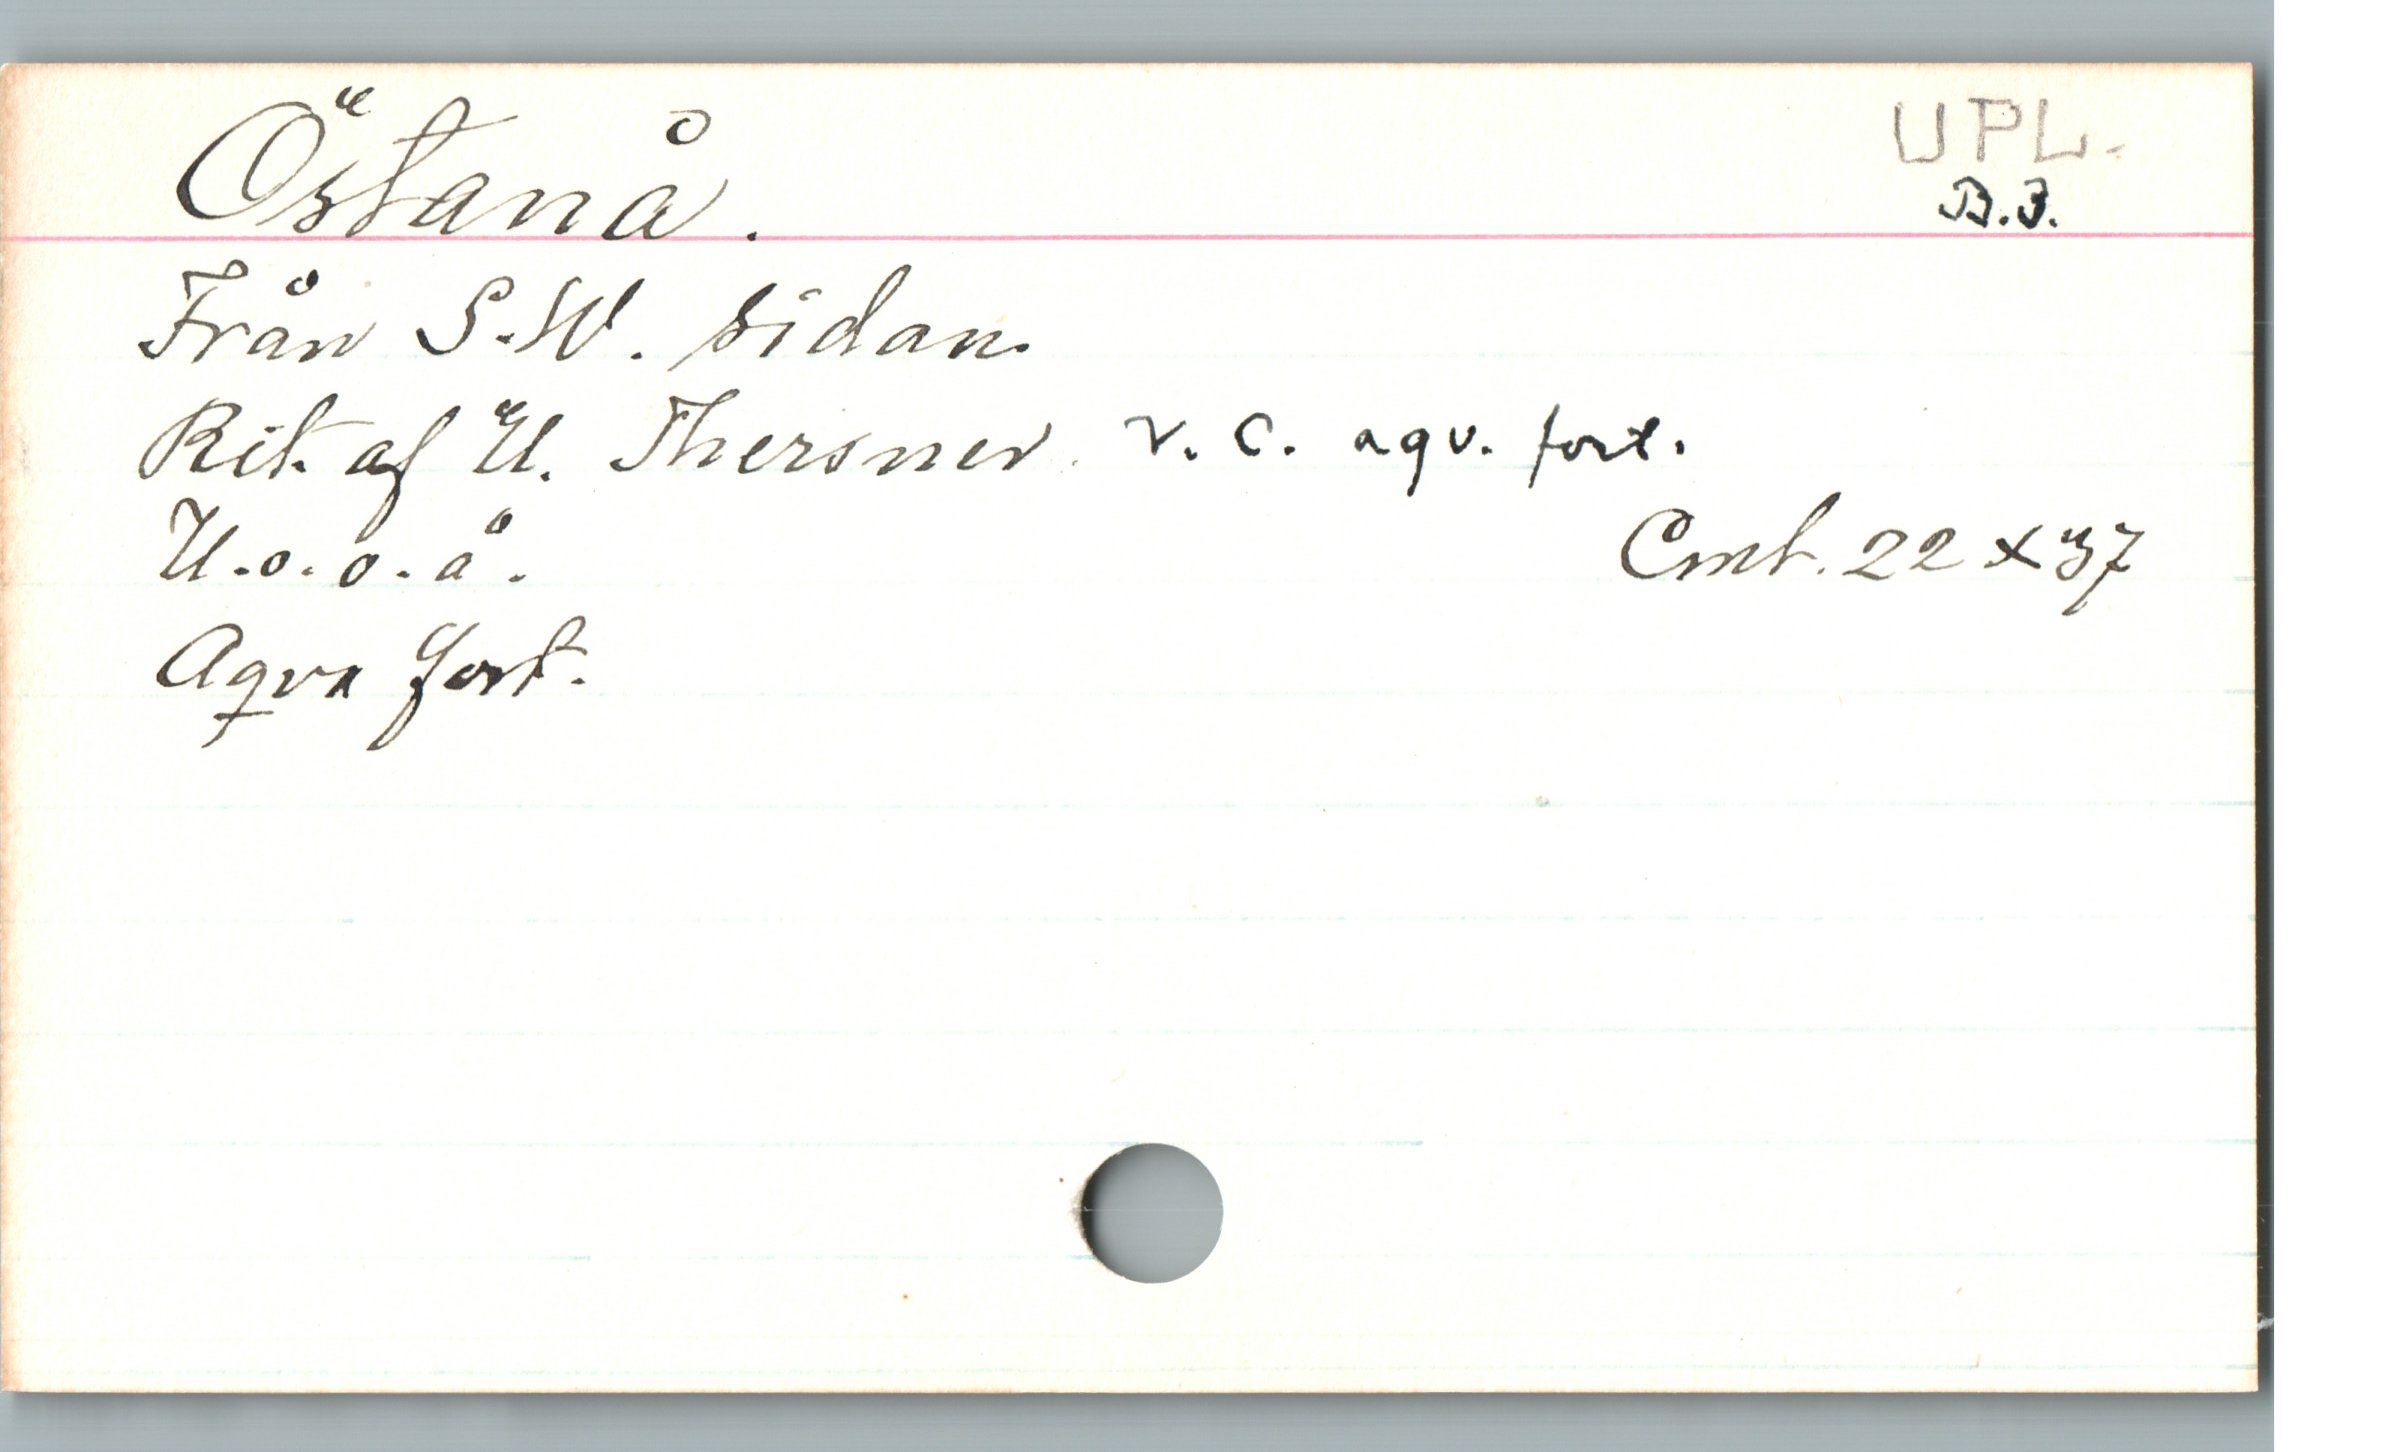 Östanå.
UPL.
B.3.
Från S.W. sidan.
Rit. af U. Thersner. v. c. aqv. fort.
U. o. o. å.
Cmt. 22 x 37
Aqva fort.